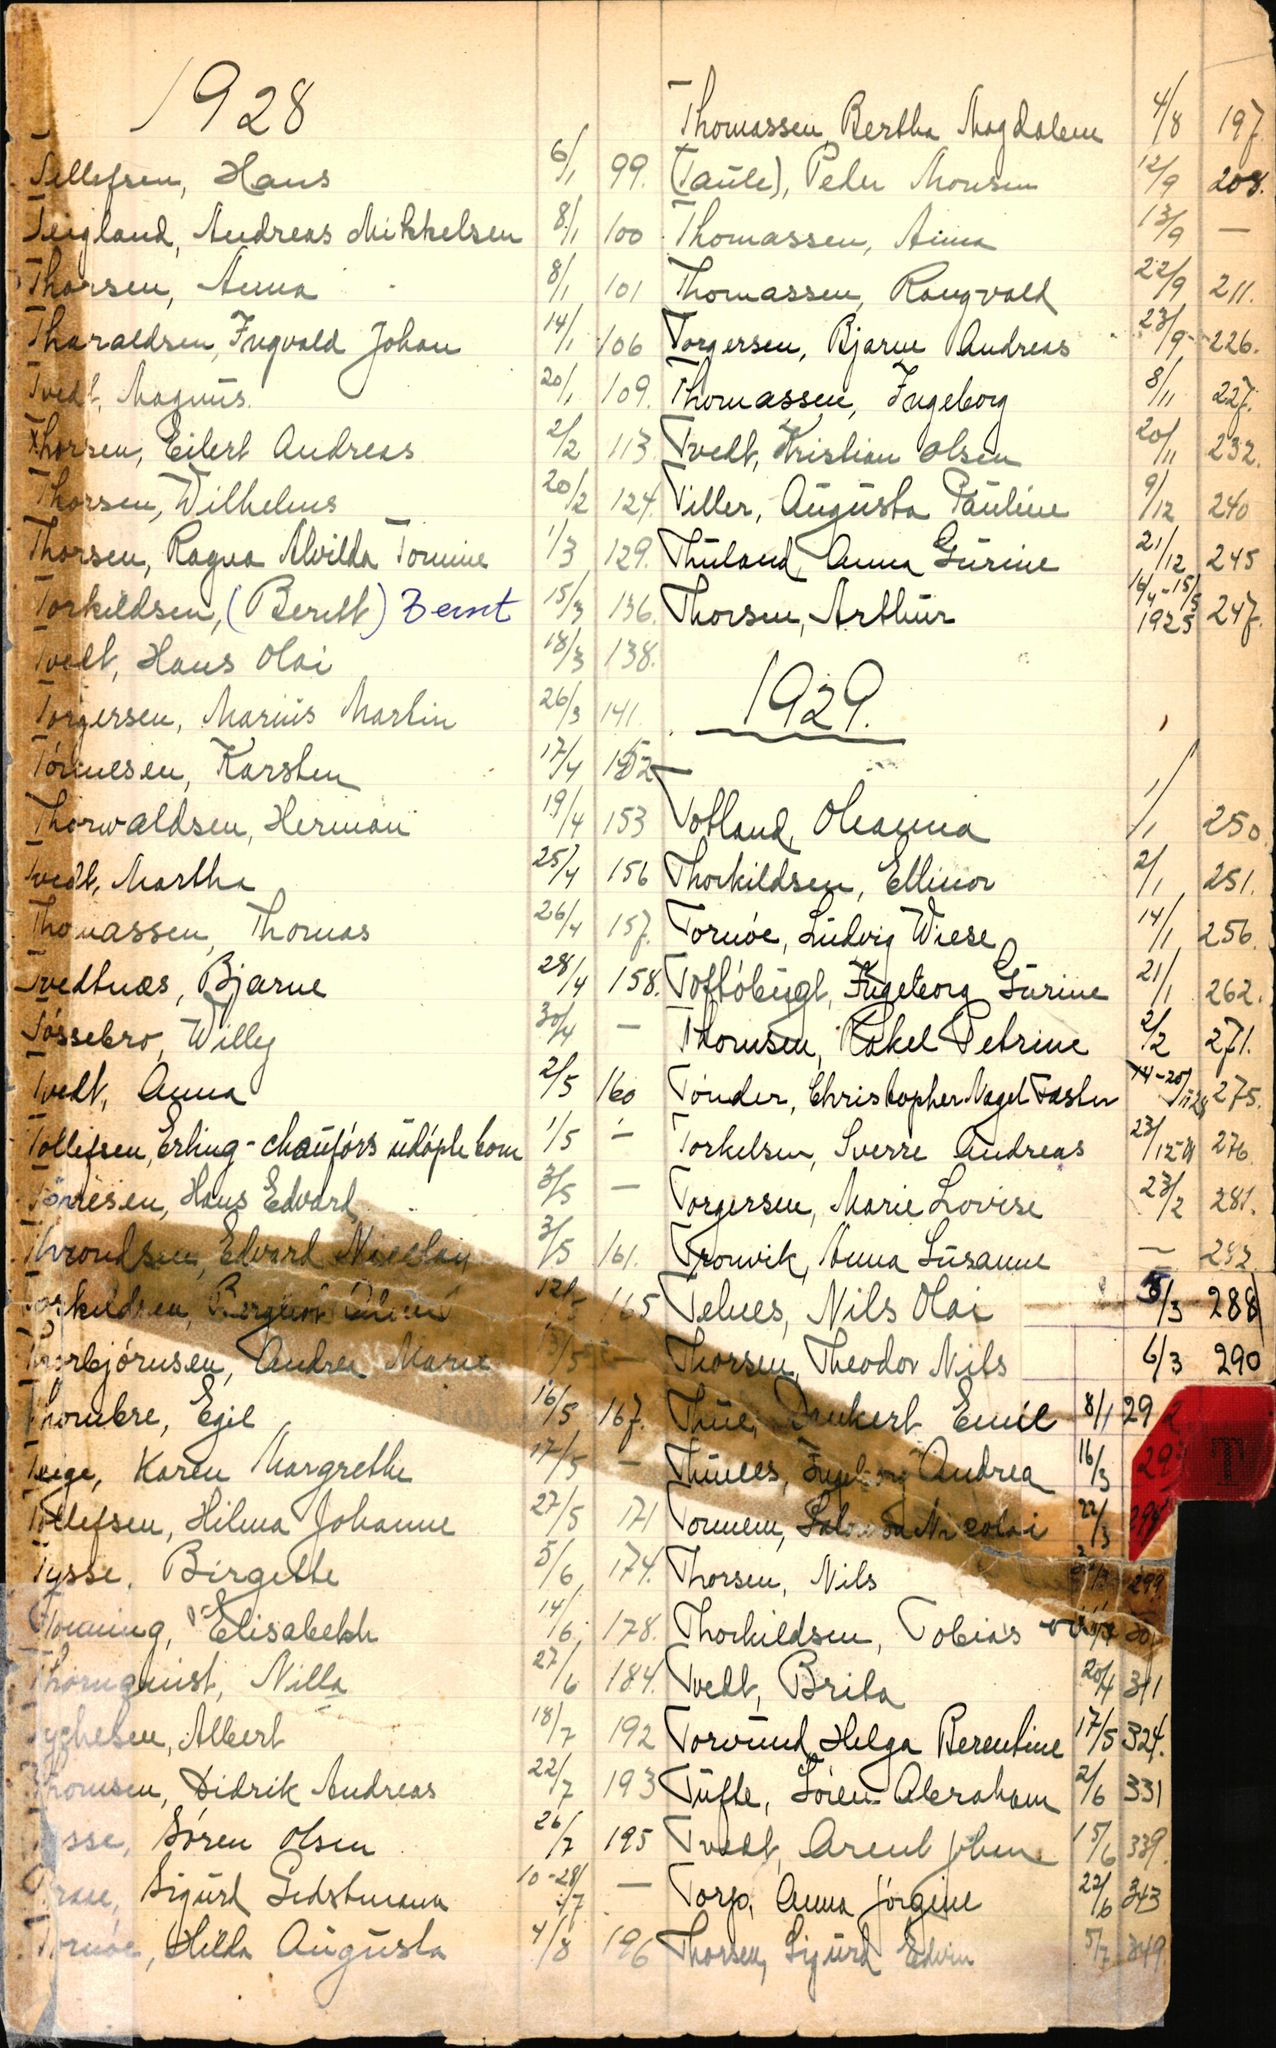 1928
Tellefsen, Hans 6/1 99.
Teigland, Andreas Mikkelsen 8/1 100
Thorsen, Anna 8/1 101
Tharaldsen, Ingvald Johan 14/1 106
Tvedt, Magnus. 20/1 109.
Thorsen, Eilert Andreas 2/2 113
Thorsen, Wilhelms 20/2 124.
Thorsen, Ragna Alvilda Tomine 1/3 129.
Torkildsen, (Beritt) Bernt 15/3 136.
Tvedt, Hans Olai 18/3 138.
Torgersen, Marius Martin 26/3 141.
Tönnesen, Karsten 17/4 152
Thorwaldsen, Herman 19/4 153
Tvedt, Martha 25/4 156
Thomassen, Thomas 26/4 157.
Tvedtnæs, Bjarne 28/4 158.
Tössebro, Willy 30/4 —
Tvedt, Anna 2/5 160
Tollefsen, Erling - chauförs udöpte barn 1/5 —
Tönnesen, Hans Edvard 3/5 —
Throndsen, Edvard Nicolay 3/5 161.
Torkildsen, 12/5 165
Thorbjörnsen, Andrea Marie 13/5 —
Thombre, Egil 16/5 167.
Teige, Karen Margrethe 17/5 —
Tollefsen, Hilma Johanne 27/5 171
Tysse, Birgitte 5/6 174.
Elisabeth 14/6 178.
Thornquist, Nilla 27/6 184.
Tychesen, Albert 18/7 192
Thomsen, Didrik Andreas 22/7 193
Tysse, Sören Olsen 26/7 195
Sigurd 10-28/7 —
Tornöe, Hilda Augusta 4/8 196
Thomassen, Bertha Magdalene 4/8 197.
(Taule), Peder Monsen 12/9 208.
Thomassen, Anna 13/9 —
Thomassen, Rangvald 22/9 211.
Torgersen, Bjarne Andreas 23/9 226.
Thomassen, Ingeborg 8/11 227.
Tvedt, Kristian Olsen 20/11 232.
Tiller, Augusta Pauline 9/12 240
Thuland, Anna Gurine 21/12 245
Thorsen, Arthur 16/4-15/5 1925 247.
1929.
Totland, Oleanna 1/1 250.
Thorkildsen, Ellinor 2/1 251.
Tornöe, Ludvig Wiese 14/1 256.
Ingeborg Gurine 21/1 262.
Thomsen, Rakel Petrine 2/2 271.
Tönder, Christopher Nagel 275.
Torkelsen, Sverre Andreas 23/12 276
Torgersen, Marie Lovise 23/2 281.
Tronvik, Anna Susanne — 283
Telnes, Nils Olai 5/3 288
Thorsen, Theodor Nils 6/3 290
Thue, Dankert Emil 8/1 292
Thunes, Ingeborg Andrea 16/3
Salomon Nicolai 22/3
Thorsen, Nils 299
Thorkildsen, Tobias
Tvedt, Brita 20/4 311
Torvund, Helga Berentine 17/5 324.
Tufte, Sören Abraham 2/6 331
Tvedt, Arent Johan 15/6 339.
Torp, Anna Jörgine 22/6 343
Thorsen, Sigurd Edvin 5/7 349.
T